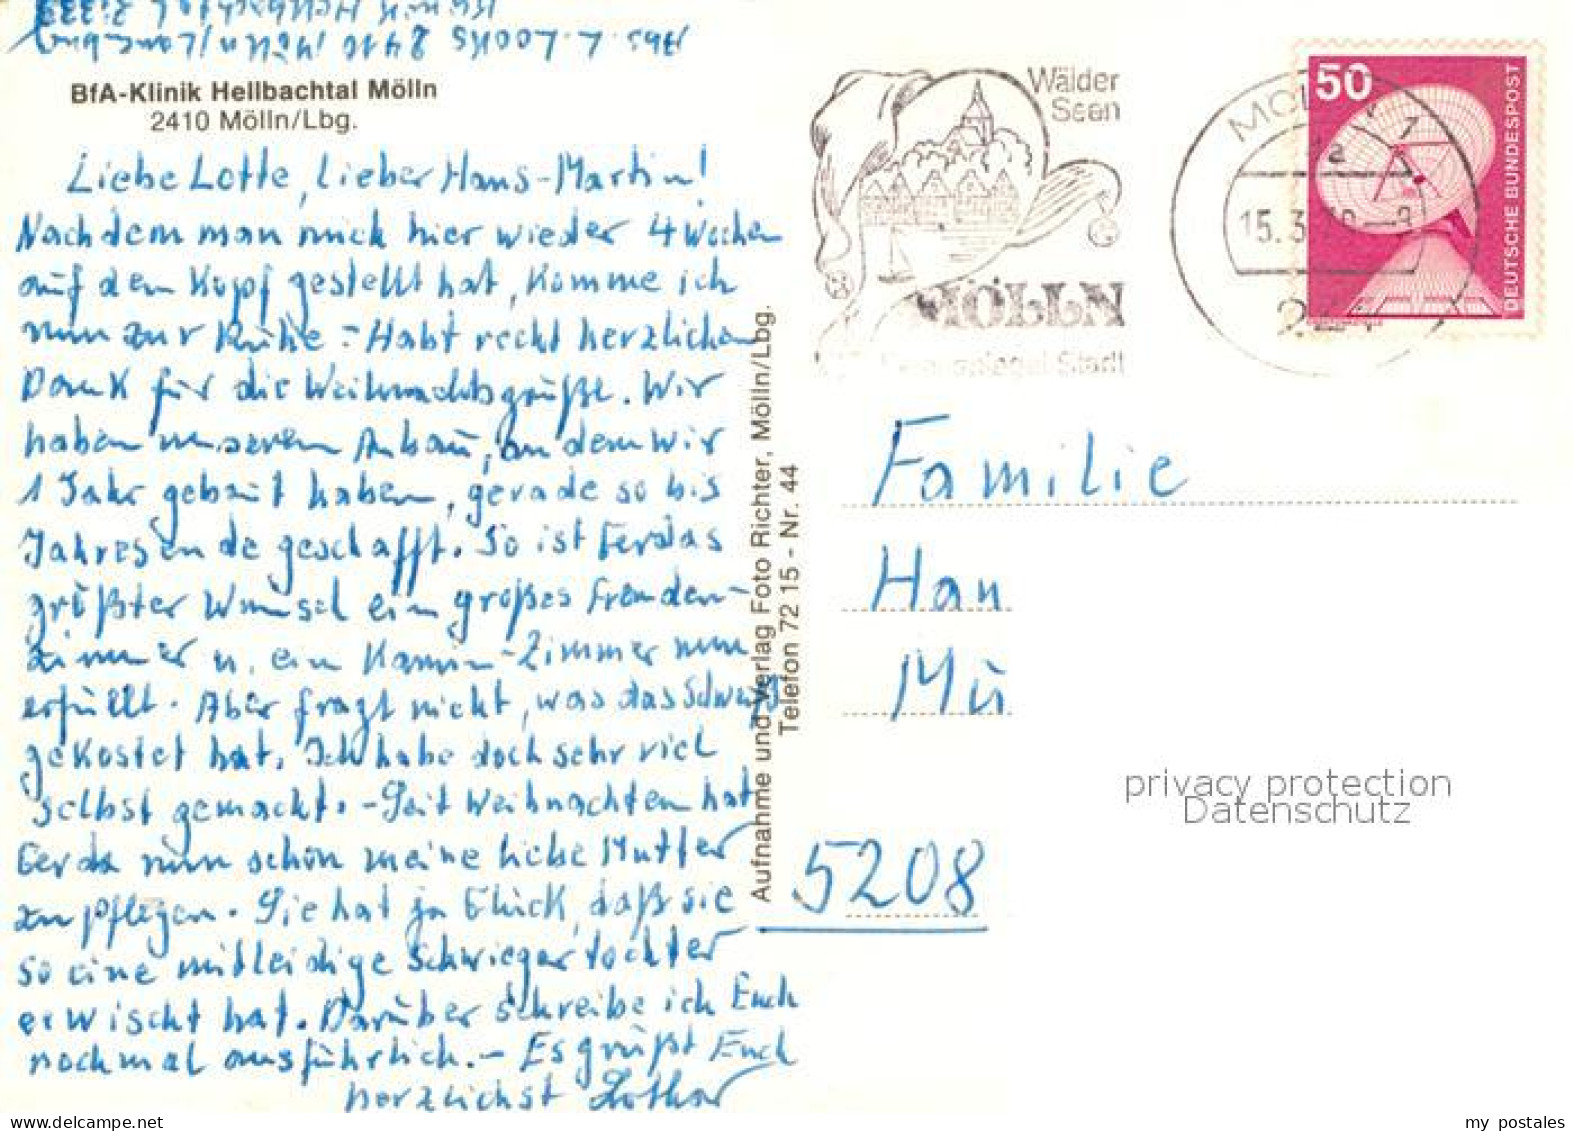 Abs. L. Looks 2410 Mölln/Lauenburg
Klinik Hellbachtal Zi.
BfA-Klinik Hellbachtal Mölln
2410 Mölln/Lbg.
Liebe Lotte, lieber Hans-Martin!
Nachdem man mich hier wieder 4 Wochen
auf den Kopf gestellt hat, komme ich
nun zur Ruhe.- Habt recht herzlichen
Dank für die Weihnachtsgrüße. Wir
haben unseren Anbau, an dem wir
1 Jahr gebaut haben, gerade so bis
Jahresende geschafft. So ist Gerdas
größter Wunsch ein großes Fremden-
zimmer u. ein Kamin-Zimmer nun
erfüllt. Aber fragt nicht, was das Schweiß
gekostet hat. Ich habe doch sehr viel
selbst gemacht. - Seit Weihnachten hat
Gerda nun schon meine liebe Mutter
zu pflegen. Sie hat ja Glück, daß sie
so eine mitleidige Schwiegertochter
erwischt hat. Darüber schreibe ich Euch
nochmal ausführlich. - Es grüßt Euch
herzlichst Lothar
Aufnahme und Verlag Foto Richter, Mölln/Lbg.
Telefon 72 15 - Nr. 44
Wälder
Seen
MÖLLN
Eulenspiegel-Stadt
MÖLLN 1
a
15.3.
50
DEUTSCHE BUNDESPOST
Familie
Han
Mü
5208
privacy protection
Datenschutz
www.delcampe.net
my_postales